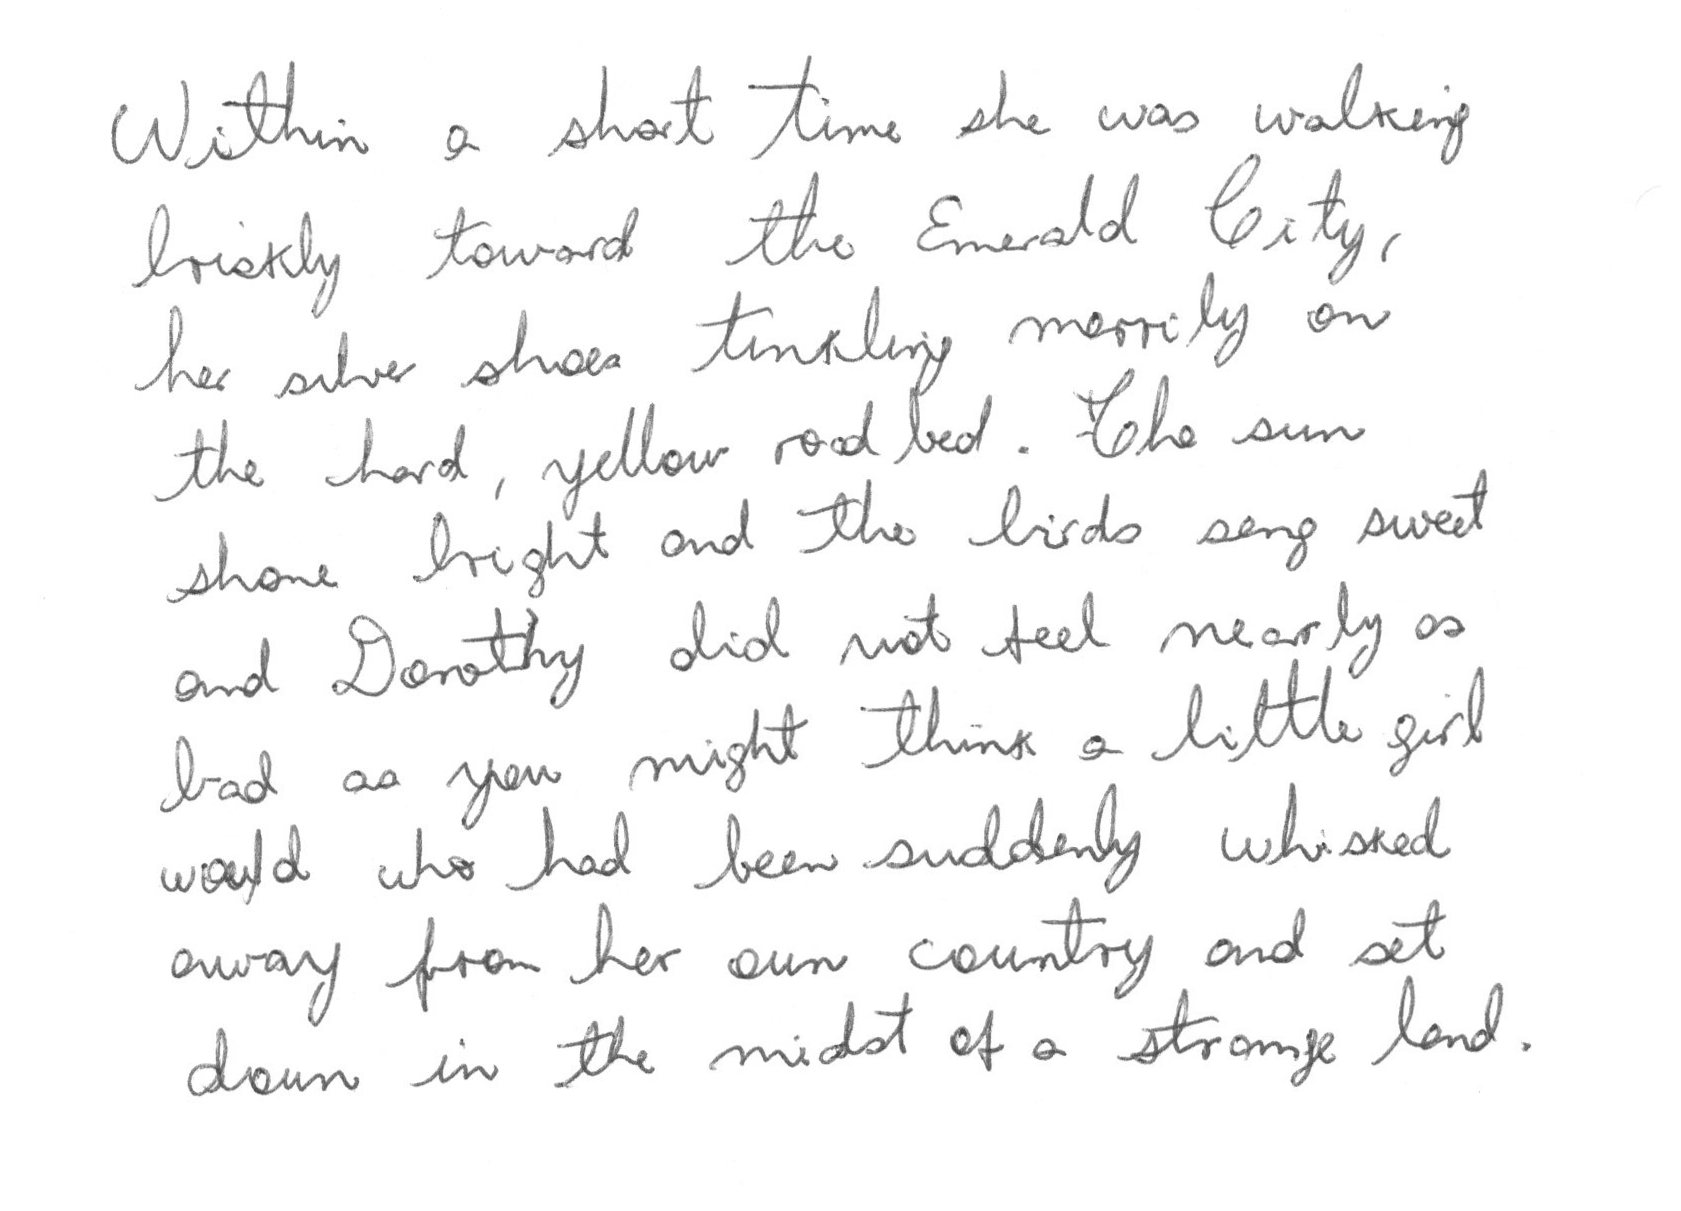 Within a short time she was walking
briskly toward the Emerald City,
her silver shoes tinkling merrily on
the hard, yellow road bed. The sun
shone bright and the birds sang sweet
and Dorothy did not feel nearly as
bad as you might think a little girl
would who had been suddenly whisked
away from her own country and set
down in the midst of a strange land.